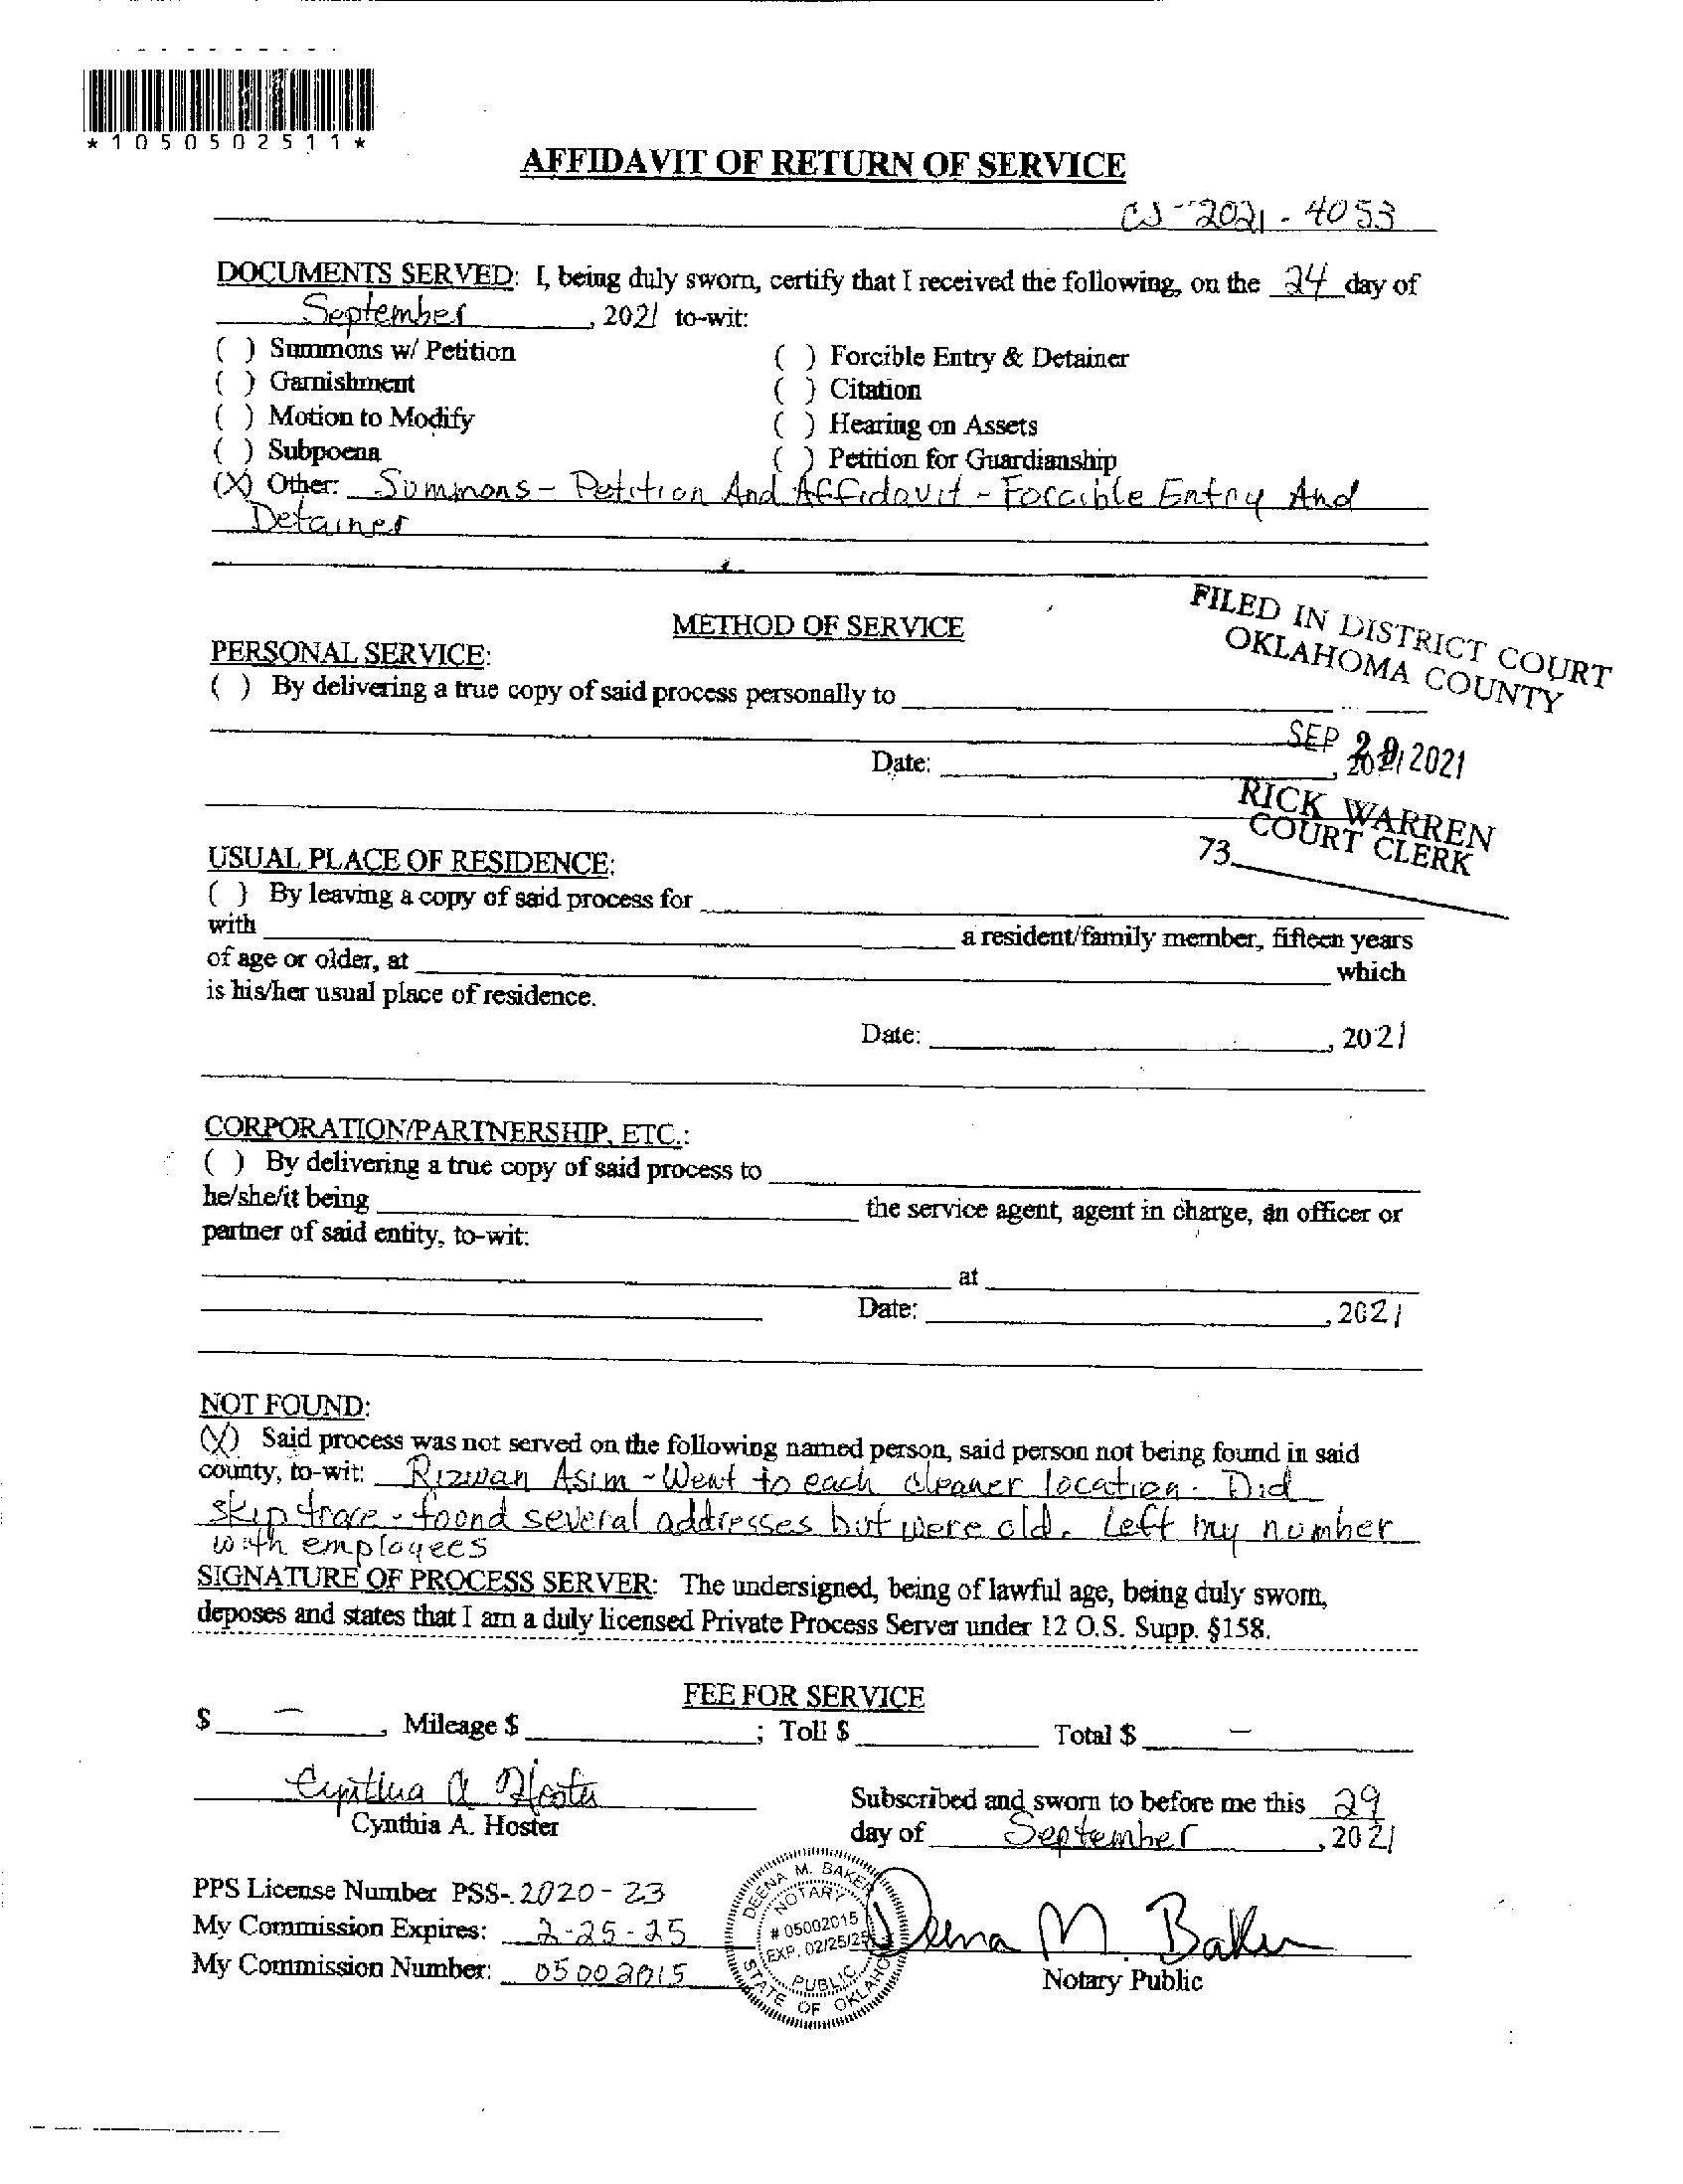 *1050502511*
AFFIDAVIT OF RETURN OF SERVICE
CJ-2021-4053
DOCUMENTS SERVED: I, being duly sworn, certify that I received the following, on the 24 day of
September, 2021 to-wit:
( ) Summons w/ Petition ( ) Forcible Entry & Detainer
( ) Garnishment ( ) Citation
( ) Motion to Modify ( ) Hearing on Assets
( ) Subpoena ( ) Petition for Guardianship
(X) Other: Summons - Petition And Affidavit - Forcible Entry And
Detainer
METHOD OF SERVICE
FILED IN DISTRICT COURT
OKLAHOMA COUNTY
PERSONAL SERVICE:
( ) By delivering a true copy of said process personally to
SEP 29 2021
Date: , 2021
RICK WARREN
COURT CLERK
73
USUAL PLACE OF RESIDENCE:
( ) By leaving a copy of said process for
with a resident/family member, fifteen years
of age or older, at which
is his/her usual place of residence.
Date: , 2021
CORPORATION/PARTNERSHIP, ETC.:
( ) By delivering a true copy of said process to
he/she/it being the service agent, agent in charge, an officer or
partner of said entity, to-wit:
at
Date: , 2021
NOT FOUND:
(X) Said process was not served on the following named person, said person not being found in said
county, to-wit: Rizwan Asim - Went to each cleaner location. Did
skip trace - found several addresses but were old. Left my number
with employees
SIGNATURE OF PROCESS SERVER: The undersigned, being of lawful age, being duly sworn,
deposes and states that I am a duly licensed Private Process Server under 12 O.S. Supp. §158.
FEE FOR SERVICE
$ - , Mileage $ ; Toll $ Total $ -
Cynthia A Hoster
Cynthia A. Hoster
Subscribed and sworn to before me this 29
day of September, 2021
PPS License Number PSS-2020-23
My Commission Expires: 2-25-25
My Commission Number: 05002015
DEENA M. BAKER
NOTARY
# 05002015
EXP. 02/25/25
PUBLIC
STATE OF OKLAHOMA
Deena M. Baker
Notary Public